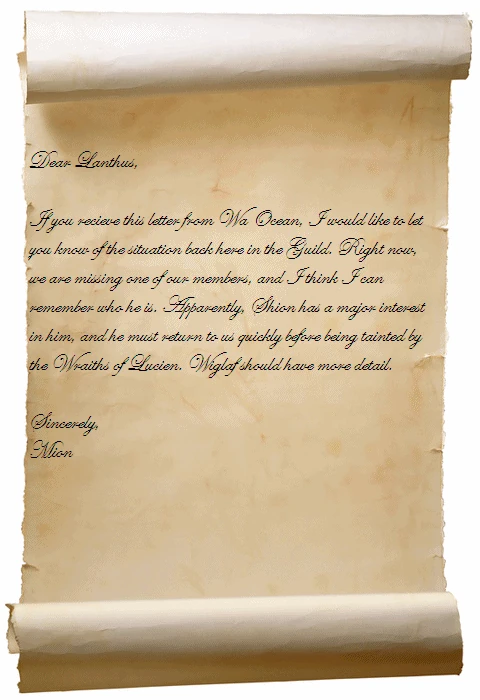 Dear Lanthus,
If you recieve this letter from Wa Ocean, I would like to let
you know of the situation back here in the Guild. Right now,
we are missing one of our members, and I think I can
remember who he is. Apparently, Shion has a major interest
in him, and he must return to us quickly before being tainted by
the Wraiths of Lucien. Wiglaf should have more detail.
Sincerely,
Mion